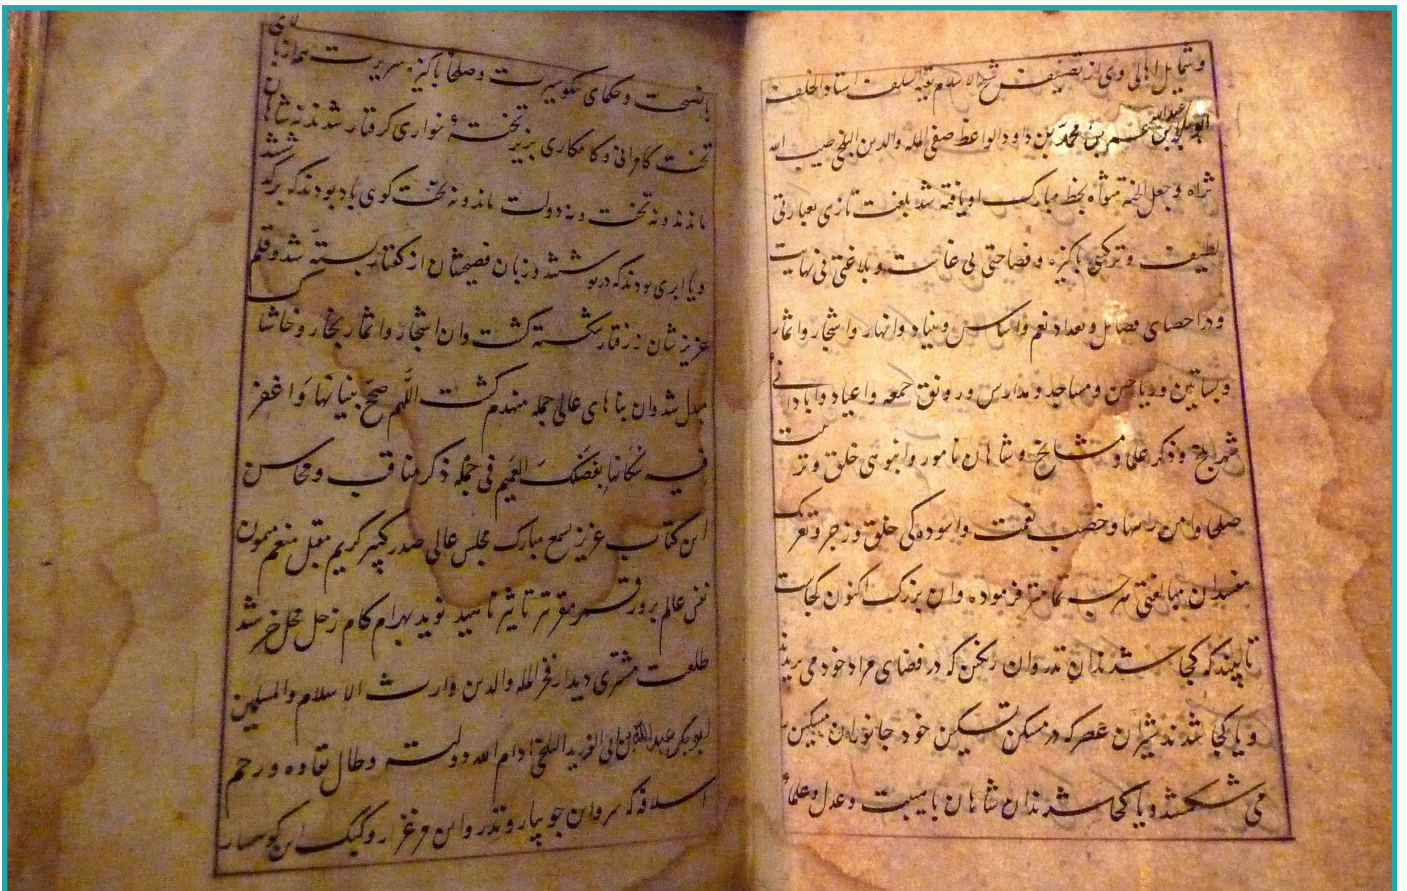 و شمایل اهالی وی از تصنیف شیخ الاسلام بقیة السلف استاد الخلف
ابو بن محمد بن داود الواعظ صفی المله والدین البلخی طیب الله
ثراه و جعل الجنة مثواه بخط مبارک او یافته شد بلغت تازی بعبارتی
لطیف و ترکیبی پاکیزه و فصاحتی بی غایت و بلاغتی بی نهایت
و در احصای فضایل و تعداد نعم و اساس و بنیاد و انهار و اشجار و اثمار
و بساتین و ریاحین و مساجد و مدارس و رونق جمعه و اعیاد و آبادانی
شهر بلخ و ذکر علما و مشایخ و شاهان نامور و انبوهی خلق و
صلحا و امن راهها و خصب نعمت و آسوده کی خلق و زجر و تعریک
مفسدان مبالغتی هر چه تمامتر فرموده و آن بزرگ اکنون کجاست
تا ببیند که کجا شدند آن تذروان که در فضای مراد خود می پریدند
و یا کجا شدند شیران عصر که در مسکن خود جانوران مسکین
می شکستند و یا کجا شدند آن شاهان با هیبت و عدل و علماء
با نصیحت و حکمای نیکو سیرت و صلحا پاکیزه سریرت همه از بالای
تخت کامرانی و کامکاری بزیر تخته خواری گرفتار شدند نه شاهان
ماندند و نه تخت و نه دولت ماند و نه بخت گوی باد بودند که برگذشتند
و یا ابری بودند که در شدند و زبان فصیحشان از گفتار بسته شد و قلم
عزیزشان از رفتار شکسته گشت و آن اشجار و اثمار بخار و خاشاک
مبدل شد و آن بناهای عالی جمله منهدم گشت اللهم صحح بنیانها و اغفر
سکانها بفضلک العمیم فی جمله ذکر مناقب و محاسن
این کتاب عزیز بسمع مبارک مجلس عالی صدر کبیر کریم مقبل منعم میمون
نفس عالم پرور قمر تاثیر ناهید نوید بهرام کام زحل محل خورشید
طلعت مشتری دیدار فخر المله والدین وارث الاسلام والمسلمین
ابو بکر عبدالله بن ابی الفرید البلخی ادام الله دولته و طال بقاوه و رحم
اسلافه که سروان جویبار و تذروان مرغزار و کبک این کوهسار